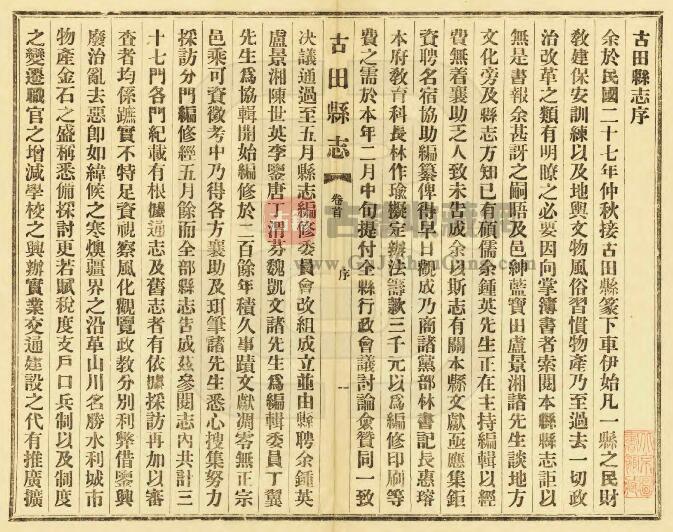 古田縣志序
余於民國二十七年仲秋接古田縣篆下車伊始凡一縣之民財
教建保安訓練以及地輿文物風俗習慣物產乃至過去一切政
治改革之類有明瞭之必要因向掌簿書者索閱本縣縣志詎以
無是書報余甚訝之嗣晤及邑紳藍寶田盧景湘諸先生談地方
文化旁及縣志方知已有碩儒余鍾英先生正在主持編輯以經
費無着襄助乏人致未告成余以斯志有關本縣文獻亟應集鉅
資聘名宿協助編纂俾得早日觀成乃商諸黨部林書記長惠瑢
本府教育科長林作瑜擬定辦法籌款三千元以為編修印刷等
費之需於本年二月中旬提付全縣行政會議討論僉贊同一致
古田縣志 卷首 序 一
决議通過至五月縣志編修委員會改組成立並由縣聘余鍾英
盧景湘陳世英李鑒唐丁渭芬魏凱文諸先生為編輯委員丁翼
先生為協輯開始編修於二百餘年積久事蹟文獻凋零無正宗
邑乘可資徵考中乃得各方襄助及珥筆諸先生悉心搜集努力
採訪分門編修經五月餘而全部縣志告成茲參閱志內共計三
十七門各門紀載有根據通志及舊志者有依據採訪再加以審
查者均係躋實不特足資視察風化觀覽政教分別利弊借鑒興
廢治亂去惡卽如緯候之寒燠疆界之沿革山川名勝水利城市
物產金石之盛稱悉備探討更若賦稅度支戶口兵制以及制度
之變遷職官之增減學校之興辦實業交通建設之代有推廣擴